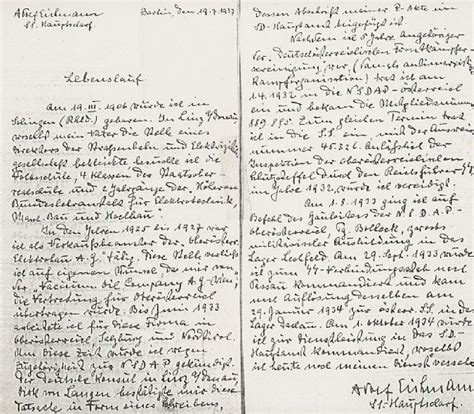 Adolf Eichmann
SS. Hauptscharf.
Berlin, den 19.7.1937
Lebenslauf.
Am 19. III. 1906 wurde ich in
Solingen (Rhld.) geboren. In Linz a/Donau,
woselbst mein Vater die Stelle eines
Direktors der Strassenbahn und Elektrizitäts
gesellschaft bekleidete besuchte ich die
Volksschule, 4 Klassen der Staatsober-
realschule und 2 Jahrgänge der Höheren
Bundeslehranstalt für Elektrotechnik,
Masch. Bau und Hochbau.
In den Jahren 1925 bis 1927 war
ich als Verkaufsbeamter der "Oberösterr.
Elektrobau A.G." tätig. Diese Stelle verliess
ich auf eigenen Wunsch da mir von
der "Vacuum Oil Company A.G. Wien"
die Vertretung für Oberösterreich
übertragen wurde. Bis Juni 1933
arbeitete ich für diese Firma in
Oberösterreich, Salzburg und Nordtirol.
Um diese Zeit wurde ich wegen
Zugehörigkeit zur NSDAP gekündigt.
Der deutsche Konsul in Linz a/Donau,
Dirk von Langen bestätigte mir diese
Tatsache in Form eines Schreibens,
dessen Abschrift meiner P-Akte im
SD-Hauptamt beigefügt ist.
Nachdem ich 5 Jahre Angehöriger
der Deutschösterreichischen Frontkämpfer
vereinigung war,
Kampforganisation) trat ich am
1.4.1932 in die NSDAP-Österreich
ein und bekam die Mitgliedsnummer
889 895. Zum gleichen Termin trat
ich in die SS ein mit der Ausweis
nummer 45.326. Anlässlich der
Inspektion der oberösterreichischen
Schutzstaffel durch den Reichsführer SS
im Jahre 1932, wurde ich vereidigt.
Am 1.8.1933 ging ich auf
Befehl des Gauleiters der N.S.D.A.P.
Oberösterreich, Pg. Bolleck, zwecks
militärischer Ausbildung in das
Lager Lechfeld. Am 29. Sept. 1933 wurde
ich zum SS-Verbindungsstab nach
Passau kommandiert und kam
nach Auflösung desselben am
29. Jänner 1934 zur österr. SS. in das
Lager Dachau. Am 1. Oktober 1934 wurde
ich zur Dienstleistung in das S.D.-
Hauptamt kommandiert, woselbst
ich heute noch meinen Dienst versehe.
Adolf Eichmann
SS-Hauptscharf.